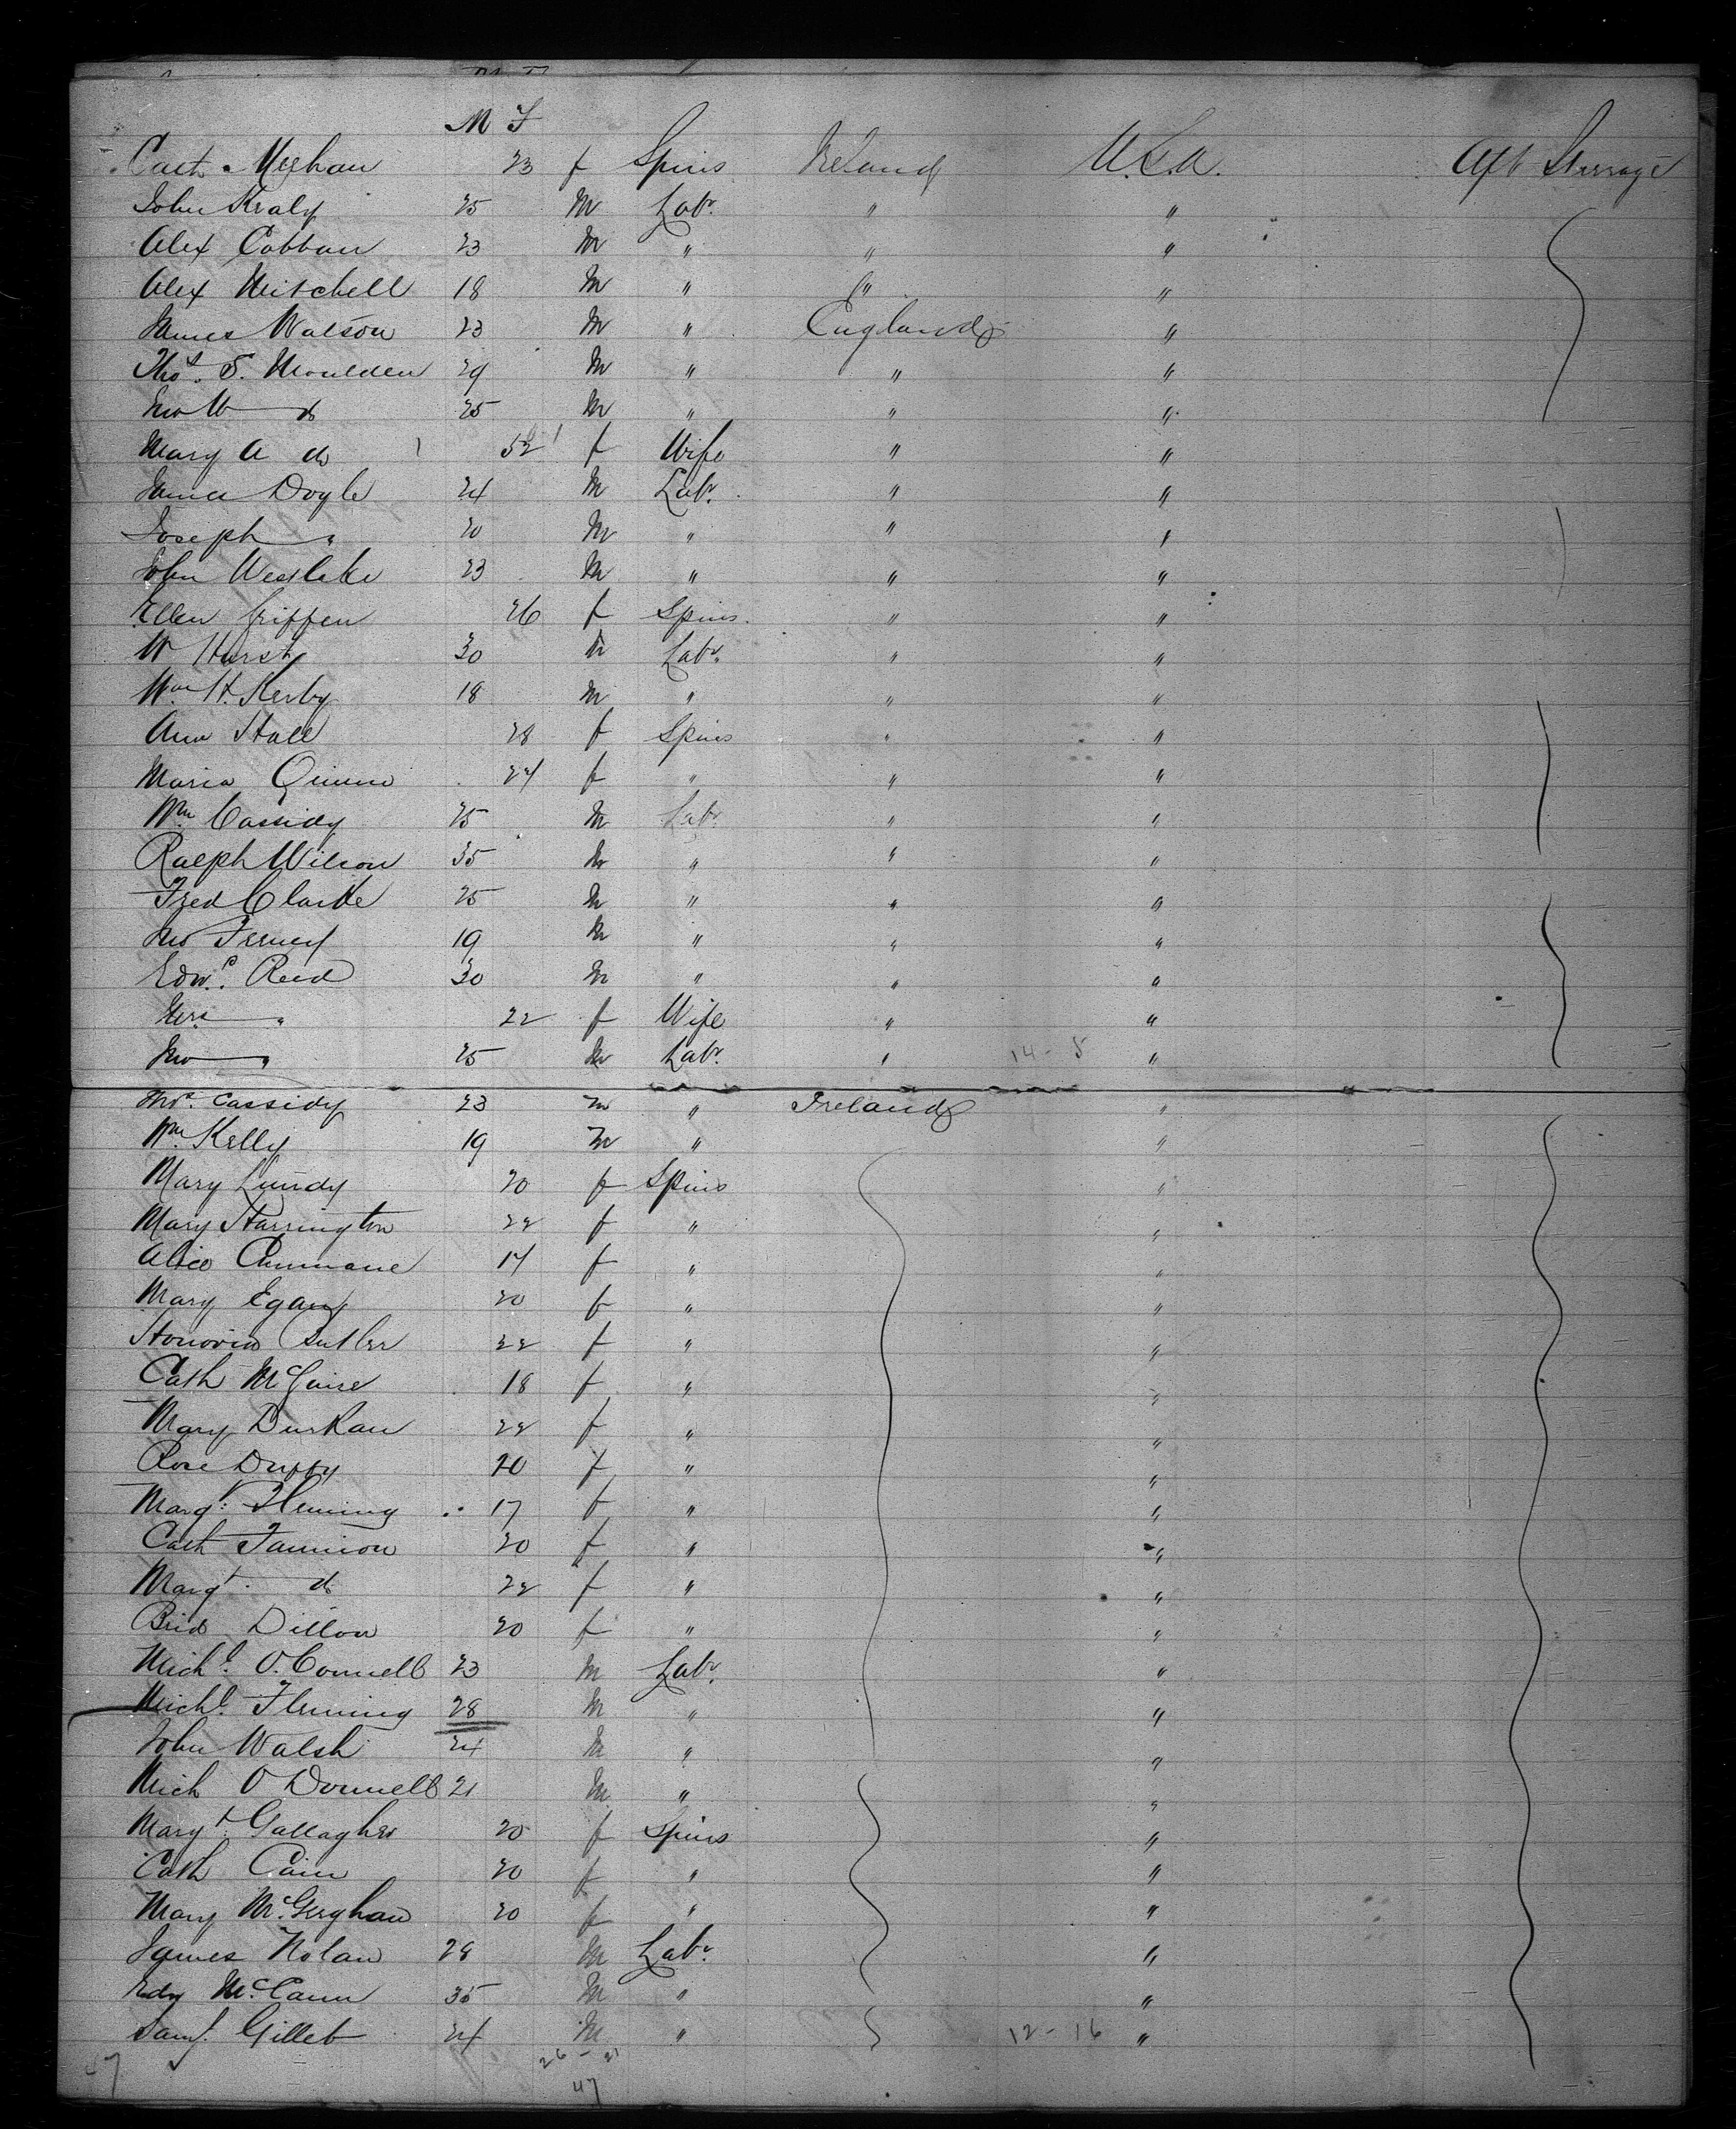 M F
Cath Meehan 23 f Spins Ireland U.S.A. Aft Steerage
John Kealy 25 M Labr. " "
Alex Cobban 23 M " " "
Alex Mitchell 18 M " " "
James Watson 23 M " England "
Thos. S. Moulden 29 M " " "
Jno W do 25 M " " "
Mary A do f Wife " "
James Doyle 24 M Labr. " "
Joseph " 20 M " " "
John Westlake 23 M " " "
Ellen Griffen 26 f Spins. " "
W Hurst 30 M Labr. " "
Wm H. Kerby 18 M " " "
Ann Hall 28 f Spins " "
Maria Quinn 24 f " " "
Wm Cassidy 25 M Labr " "
Ralph Wilson 35 M " " "
Fred Clarke 25 M " " "
Jno 19 M " " "
Edwd. Reid 30 M " " "
Mrs " 22 f Wife " "
Jno " 25 M Labr. " 14 - 8 "
Thos. Cassidy 23 M " Ireland "
Wm Kelly 19 M " "
Mary Lundy 20 f Spins "
Mary Harrington 22 f " "
Alice Cummane 17 f " "
Mary Egan 20 f " "
Honoria Butler 22 f " "
Cath McGuire 18 f " "
Mary Durkan 22 f " "
Rose Duffy 20 f " "
Margt. Fleming 17 f " "
Cath Fannion 20 f " "
Margt. do 22 f " "
Brid Dillon 20 f " "
Michl. O'Connell 23 M Labr. "
Michl. Fleming 28 M " "
John Walsh 24 M " "
Mich O Donnell 21 M " "
Margt. Gallagher 20 f Spins "
Cath Cain 20 f " "
Mary McGerghan 20 f " "
James Nolan 28 M Labr. "
Edw McCann 35 M " "
Saml. Gillet 24 M " 12 - 16 "
26 - 21
47 47